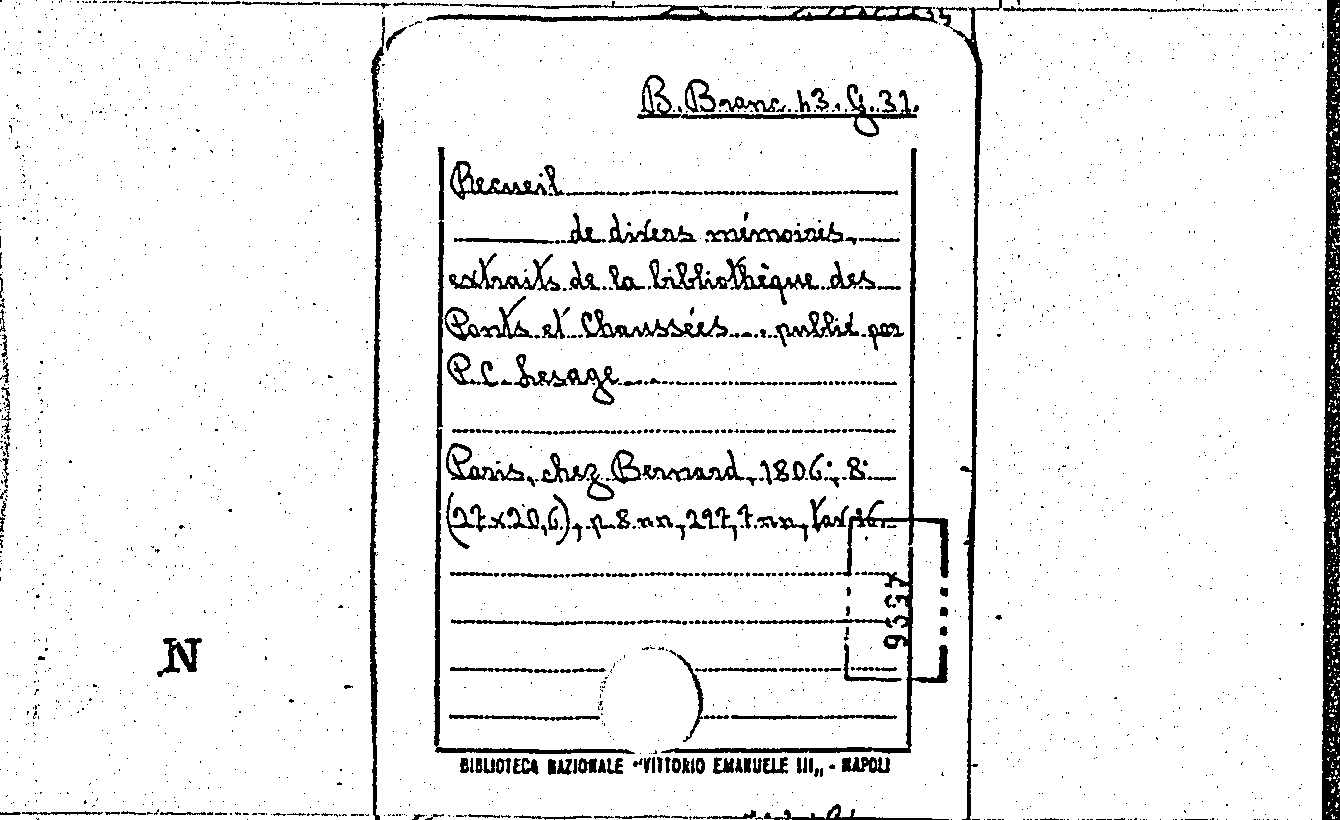 B. Branc. 43. G. 31.
Recueil
de divers mémoires,
extraits de la bibliothèque des
Ponts et Chaussées... publié par
P. C. Lesage...
Paris, chez Bernard, 1806; 8°
(27x20,6), p. 8 nn, 297, 7 nn, tav. 16.
N
BIBLIOTECA NAZIONALE "VITTORIO EMANUELE III„ - NAPOLI